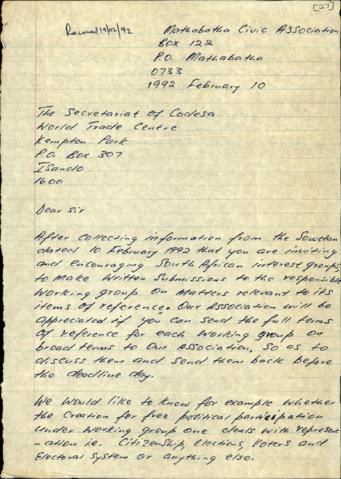 [27]
Received 19/02/92
Mathabatha Civic Association
Box 122
P.O. Mathabatha
0733
1992 February 10
The Secretariat of Codesa
World Trade Centre
Kempton Park
P.O. Box 307
Isando
1600
Dear Sir
After collecting information from the Sowetan
dated 10 February 1992 that you are inviting
and encouraging South African interest groups
to make written submissions to the responsible
working group on matters relevant to its
items of reference. Our Association will be
appreciated if you can send the full terms
of reference for each working group on
broad terms to Our Association, so as to
discuss them and send them back before
the deadline day.
We would like to know for example whether
the Creation for free political participation
under working group one deals with represent
-ation ie. Citizenship, Elections, Voters and
Electoral System or anything else.